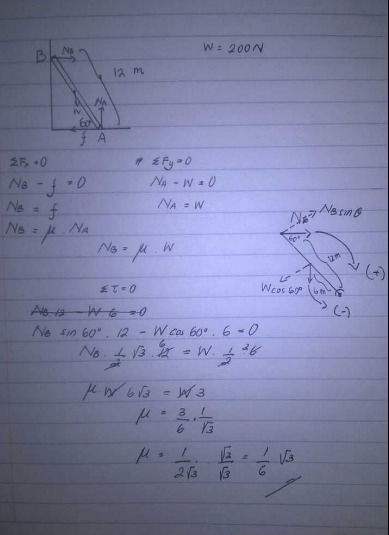 W = 200N
B
NA
12 m
NA
60°
f A
ΣFx = 0
NB - f = 0
NB = f
NB = μ . NA
ΣFy = 0
NA - W = 0
NA = W
NB = μ . W
NB sin θ
60°
12m
(+)
W cos 60°
6m
(-)
Στ = 0
NB.12 - W 6 = 0
NB sin 60° . 12 - W cos 60° . 6 = 0
NB . 1/2 √3 . 12 6 = W . 1/2 3 6
μ W 6√3 = W 3
μ = 3/6 . 1/√3
μ = 1/2√3 . √3/√3 = 1/6 √3